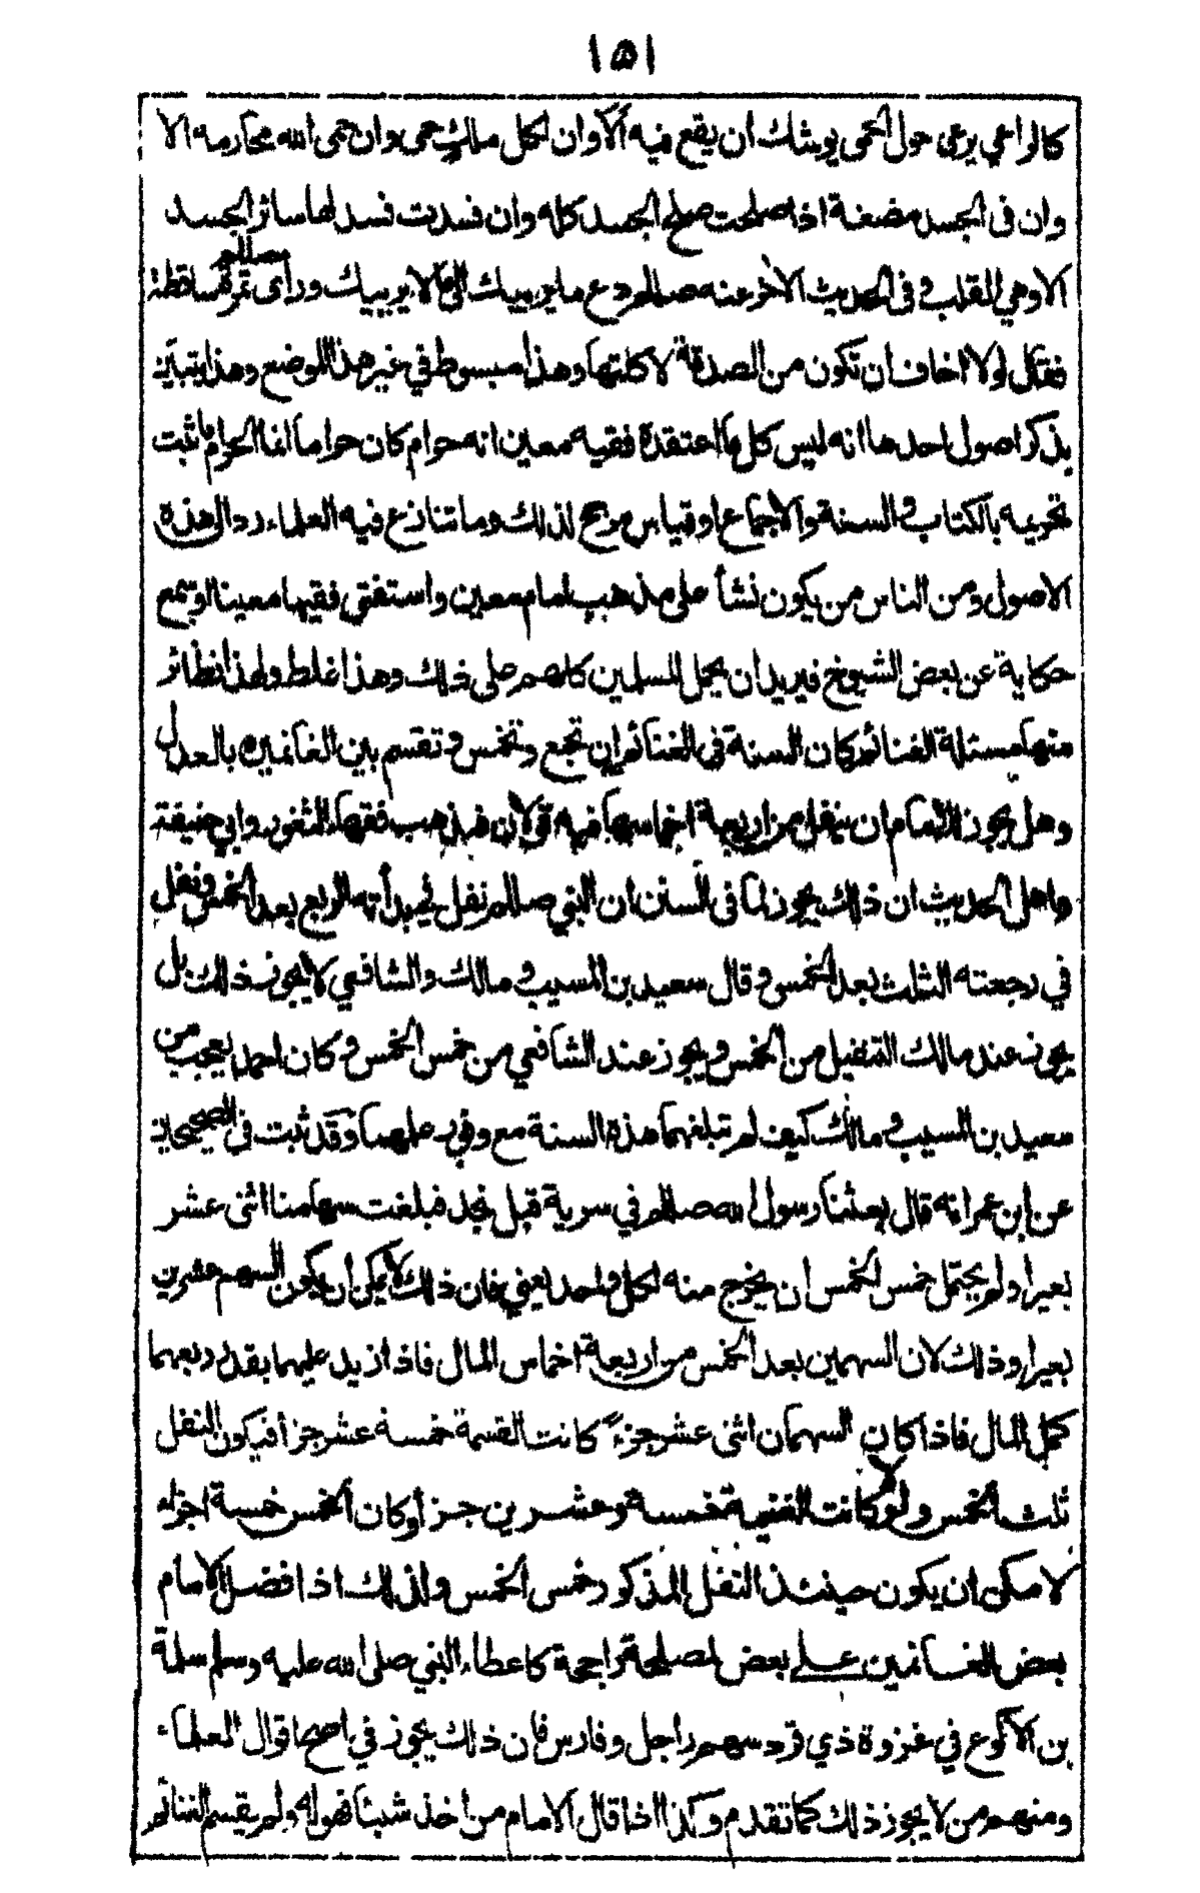 ١٥١
كالراعي يرعى حول الحمى يوشك ان يقع فيه ألا وان لكل ملك حمى وان حمى الله محارمه الا
وان في الجسد مضغة اذا صلحت صلح الجسد كله وان فسدت فسد لها سائر الجسد
الا وهي القلب و في الحديث الآخر عنه صللم دع ما يريبك الى ما لا يريبك ورأى صللم تمرة ساقطة
فقال لولا اخاف ان تكون من الصدقة لاكلتها وهذا مبسوط في غير هذا الموضع وهذا يتبين
بذكر اصول احدها انه ليس كل ما اعتقده فقيه معين انه حرام كان حراما انما الحرام ما ثبت
تحريمه بالكتاب و السنة والاجماع او قياس مرجح لذلك وما تنازع فيه العلماء رد الى هذه
الاصول ومن الناس من يكون نشأ على مذهب امام معين واستفتى فقيها معينا او سمع
حكاية عن بعض الشيوخ فيريد ان يحمل المسلمين كلهم على ذلك وهذا غلط ولهذا نظائر
منها مسئلة الغنائم كان السنة في الغنائم ان تجمع وتخمس و تقسم بين الغانمين بالعدل
وهل يجوز للامام ان ينفل من اربعة اخماسها فيه قولان فمذهب فقهاء الثغور وابي حنيفة
واهل الحديث ان ذلك يجوز لما في السنن ان النبي صللم نفل في بدأته الربع بعد الخمس ونفل
في رجعته الثلث بعد الخمس و قال سعيد بن المسيب و مالك والشافعي لا يجوز ذلك بل
يجوز عند مالك التنفيل من الخمس و يجوز عند الشافعي من خمس الخمس و كان احمد يعجب من
سعيد بن المسيب و مالك كيف لم تبلغهما هذه السنة مع وفور علمهما وقد ثبت في الصحيحين
عن ابن عمر انه قال بعثنا رسول الله صللم في سرية قبل نجد فبلغت سهامنا اثنى عشر
بعيرا ولو يحتمل خمس الخمس ان يخرج منه لكل واحد يعني فان ذلك لا يمكن ان يكون السهم عشرين
بعيرا وذلك لان السهمين بعد الخمس من اربعة اخماس المال فاذا زيد عليهما بقدر ربعهما
كمل المال فاذا كان السهمان اثنى عشر جزءً كانت القسمة خمسة عشر جزأ فيكون النفل
ثلث الخمس ولو كانت الغنيمة خمسة وعشرين جزأ وكان الخمس خمسة اجزاء
لامكن ان يكون حينئذ النفل المذكور خمس الخمس وكذلك اذا فضل الامام
بعض الغانمين على بعض لمصلحة راجحة كاعطاء النبي صلى الله عليه وسلم سلمة
بن الاكوع في غزوة ذي قرد سهم راجل وفارس فان ذلك يجوز في اصح اقوال العلماء
ومنهم من لا يجوز ذلك كما تقدم وكذا اذا قال الامام من اخذ شيئا فهو له ولم يقسم الغنائم